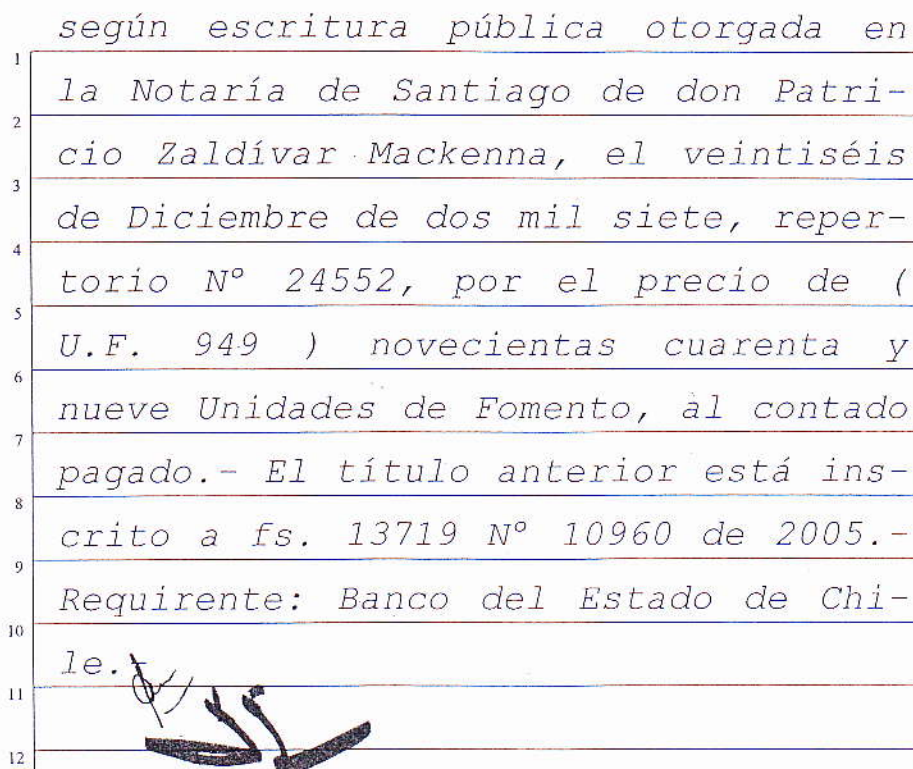 según escritura pública otorgada en
1
la Notaría de Santiago de don Patri-
2
cio Zaldívar Mackenna, el veintiséis
3
de Diciembre de dos mil siete, reper-
4
torio N° 24552, por el precio de (
5
U.F. 949 ) novecientas cuarenta y
6
nueve Unidades de Fomento, al contado
7
pagado.- El título anterior está ins-
8
crito a fs. 13719 N° 10960 de 2005.-
9
Requirente: Banco del Estado de Chi-
10
le.-
11
12